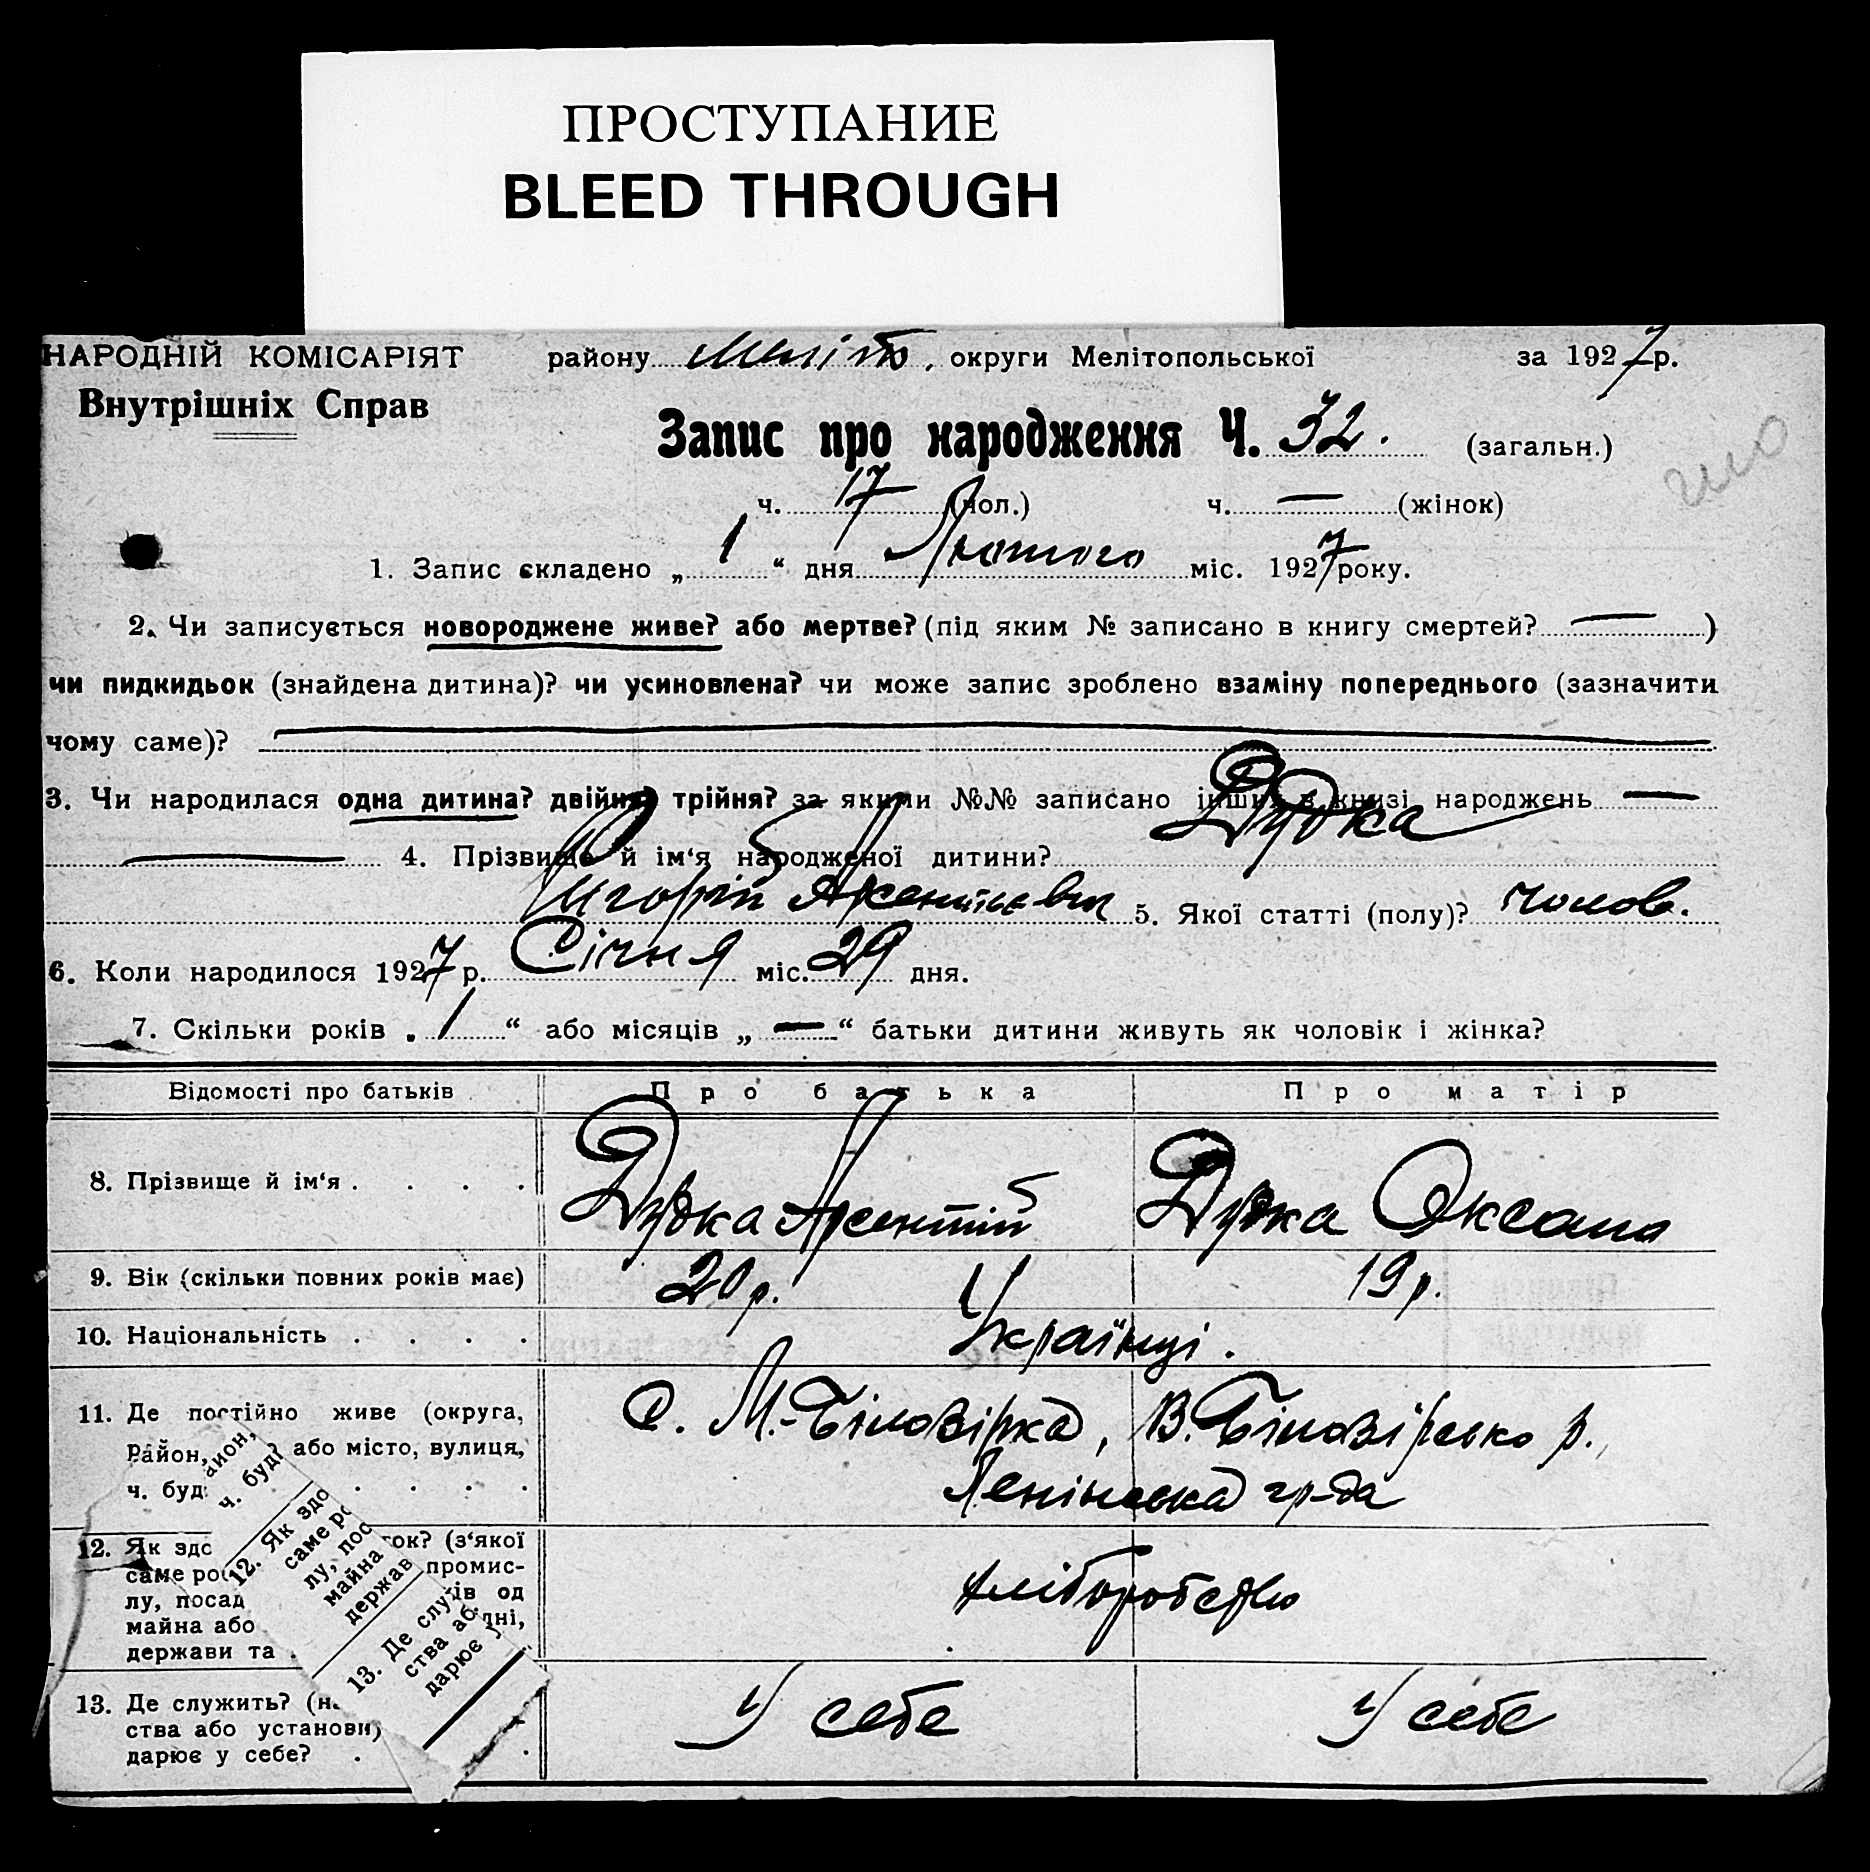 ПРОСТУПАНИЕ
BLEED THROUGH
НАРОДНІЙ КОМІСАРІЯТ району Меліто. округи Мелітопольської за 1927 р.
Внутрішніх Справ
Запис про народження Ч. 32. (загальн.)
ч. 17 (чол.) ч. — (жінок)
1. Запис складено „ 1 “ дня Лютого міс. 1927 року.
2. Чи записується новороджене живе? або мертве? (під яким № записано в книгу смертей? — )
чи пидкидьок (знайдена дитина)? чи усиновлена? чи може запис зроблено взаміну попереднього (зазначити
чому саме)? —
3. Чи народилася одна дитина? двійня? трійня? за якими №№ записано інших в книзі народжень —
— 4. Прізвище й ім‘я народженої дитини? Дудка
Игорій Арсентіевич 5. Якої статті (полу)? чолов.
6. Коли народилося 1927 р. Січня міс. 29 дня.
7. Скільки років „ 1 “ або місяців „ — “ батьки дитини живуть як чоловік і жінка?
Відомості про батьків Про батька Про матір
8. Прізвище й ім‘я . . . . Дудка Арсентій Дудка Оксана
9. Вік (скільки повних років має) 20 р. 19 р.
10. Національність . . . . Українці.
11. Де постійно живе (округа, С. М.-Білозірка, В. Білозірсько р.,
Район, або місто, вулиця,
ч. буд. . . . . Ленінська гр-да
12. Як здо ок? (з‘якої
саме ро промис-
лу, посад ів од
майна або дні,
держави та
хліборобство
13. Де служить? (на
ства або установи)
дарює у себе? . .
У себе У себе
айон,
ч. буд
12. Як здо
саме ро
лу, пос
майна
держав
13. Де служ
ства аб
дарює у